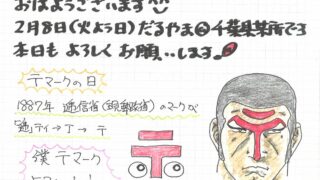 おはようございます^^
2月8日(火よう日)だるやま㋡千葉県某所です
本日も よろしくお願いします。
〒マークの日
1887年 逓信省(現郵政省)のマークが
テイ→T→〒
僕〒マーク